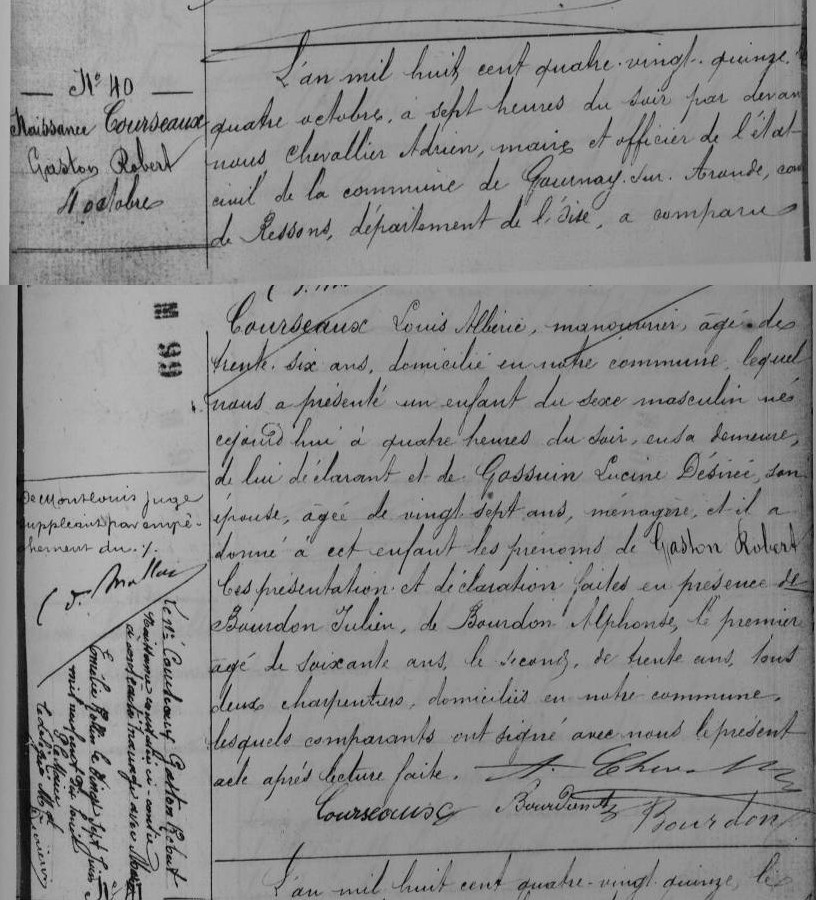 N° 40
Naissance Courseaux
Gaston Robert
4 octobre
L'an mil huit cent quatre-vingt-quinze, le
quatre octobre, à sept heures du soir par devan
nous Chevallier Adrien, maire et officier de l'état-
civil de la commune de Gournay-sur-Aronde, can
de Ressons, département de l'Oise, a comparu
Courseaux Louis Albéric, manouvrier, âgé de
trente-six ans, domicilié en notre commune, lequel
nous a présenté un enfant du sexe masculin né
cejourd'hui à quatre heures du soir, en sa demeure,
de lui déclarant et de Gossuin Lucine Désirée, son
épouse, âgée de vingt-sept ans, ménagère, et il a
donné à cet enfant les prénoms de Gaston Robert
Ces présentation et déclaration faites en présence de
Bourdon Julien, de Bourdon Alphonse, le premier
âgé de soixante ans, le second, de trente ans, tous
deux charpentiers, domiciliés en notre commune,
lesquels comparants ont signé avec nous le présent
acte après lecture faite. A. Chevallier
Courseaux Bourdon A Bourdon
L'an mil huit cent quatre-vingt-quinze, le
M 99
De Montlouis juge
suppléant par empê-
chement du
Courseaux Gaston Robert
naissance
a contracté mariage avec
Emélie le vingt sept juin
mil neuf cent